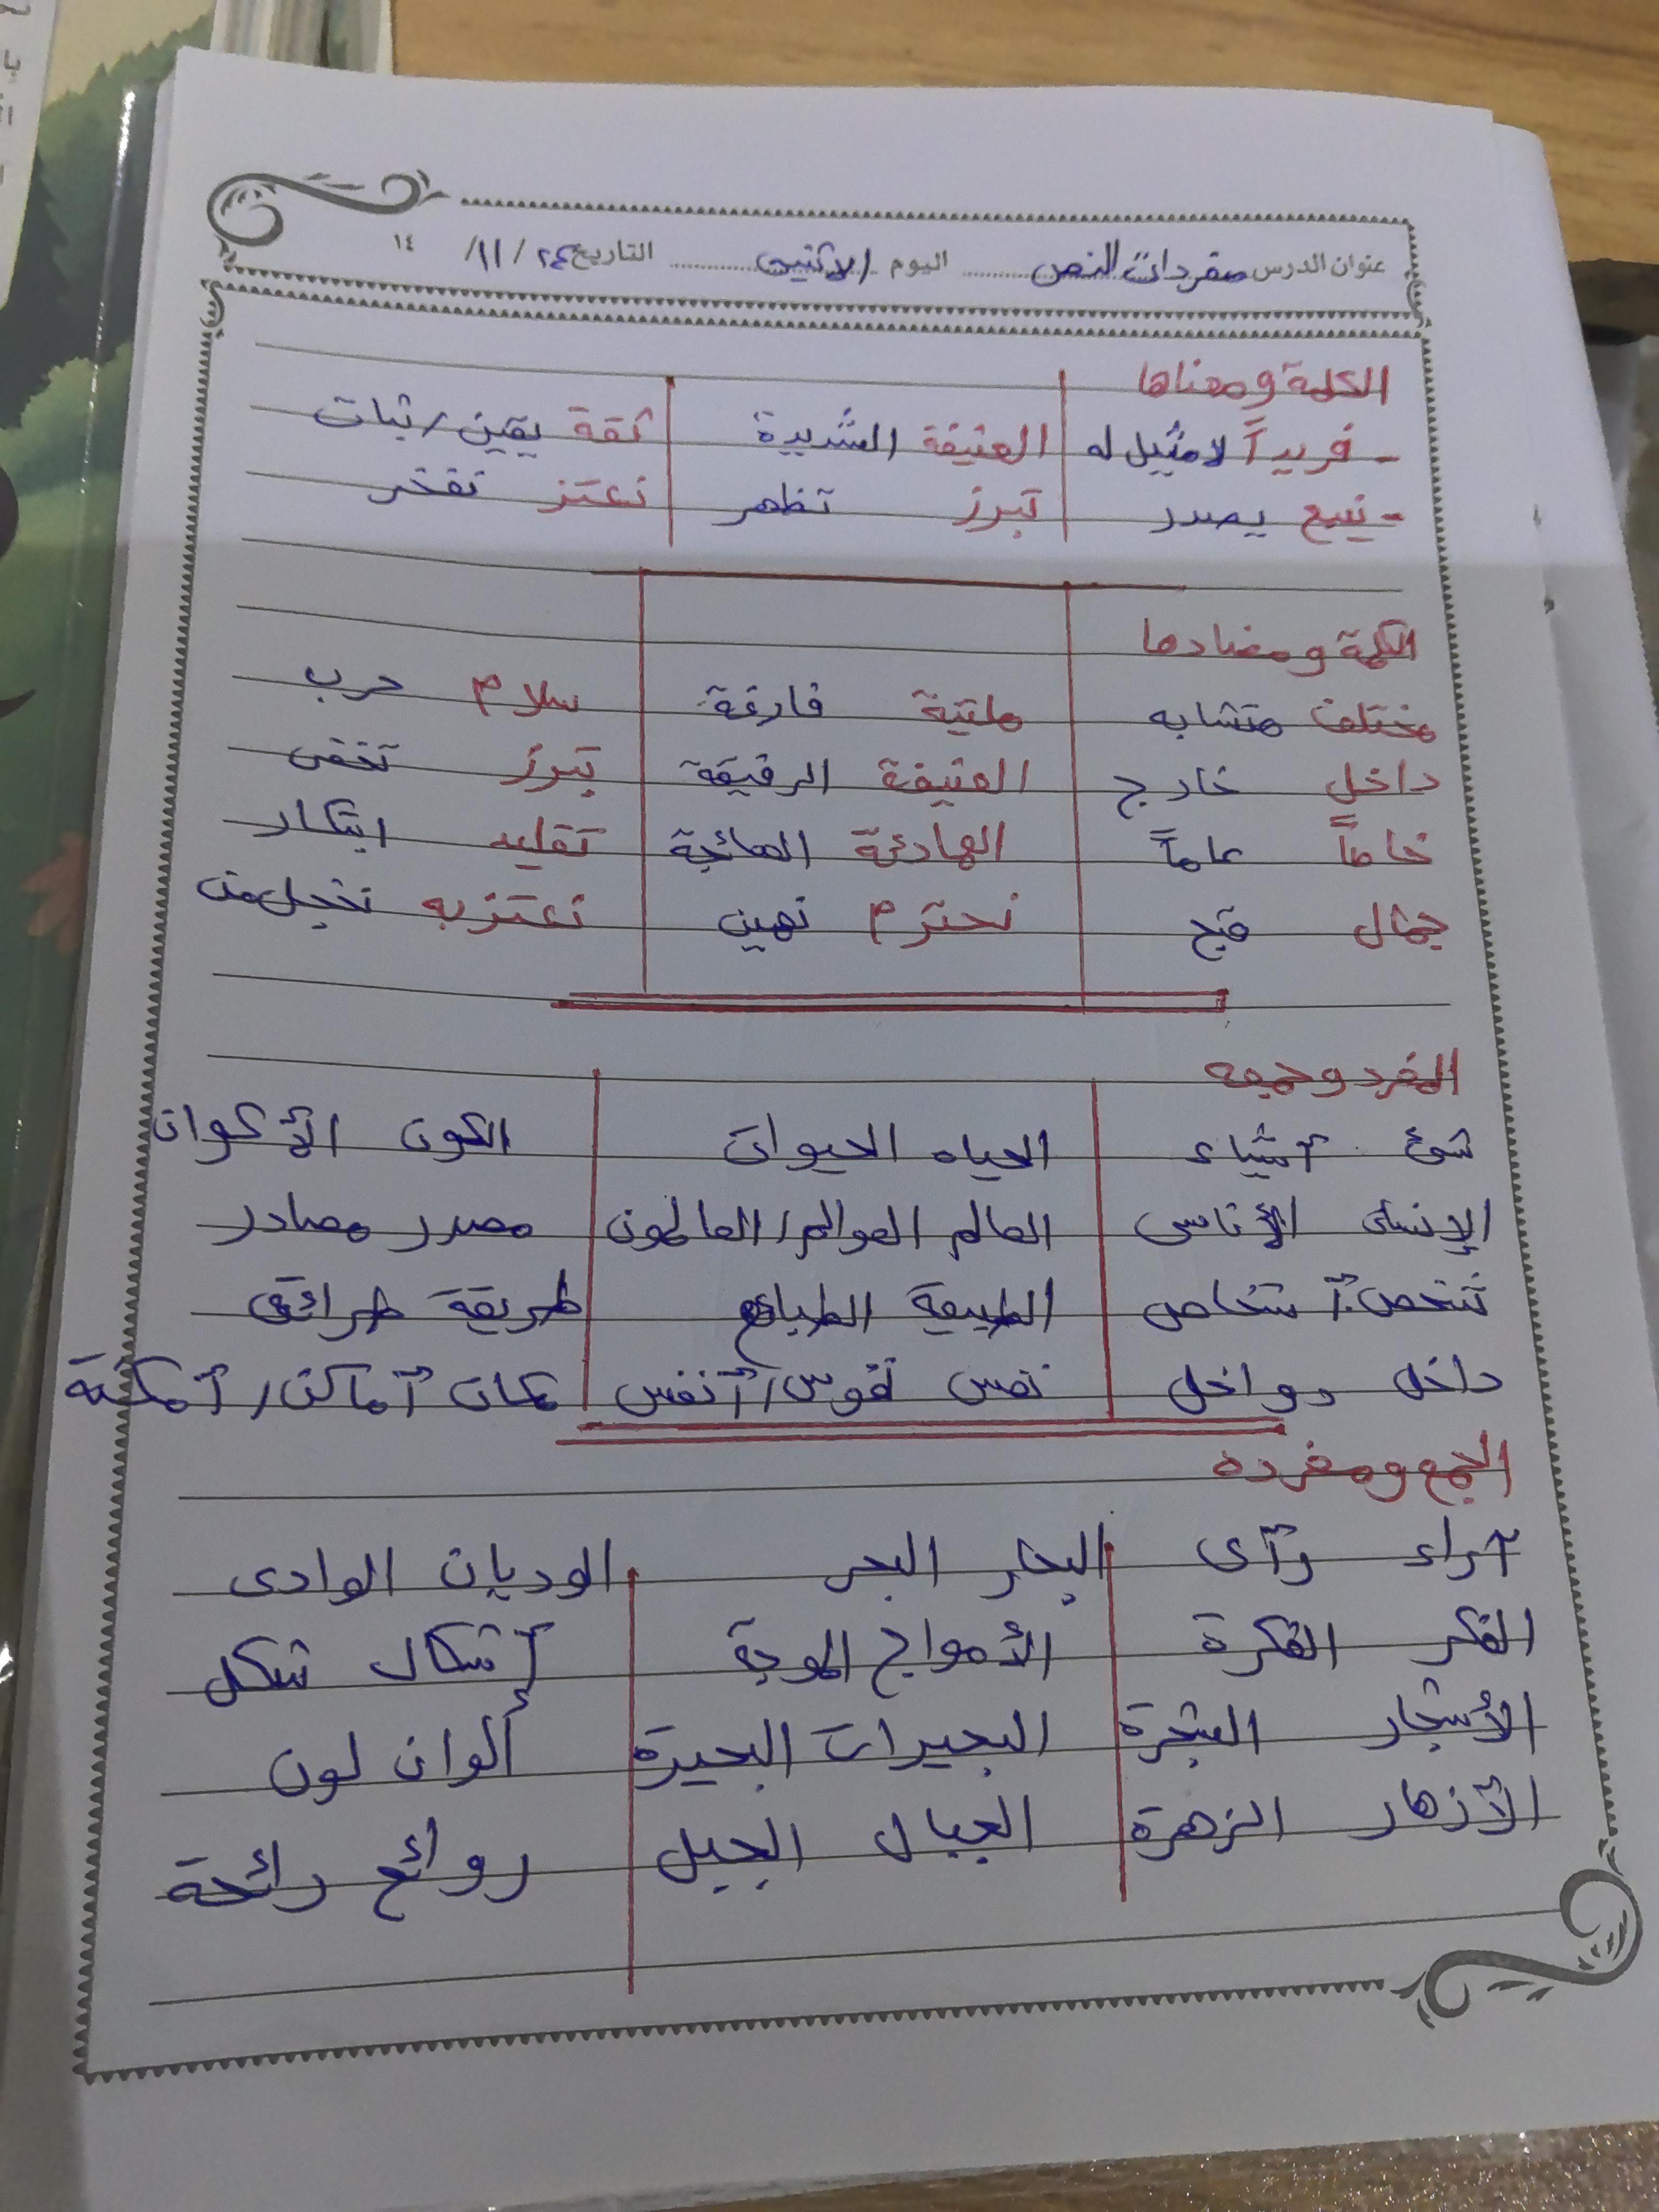 عنوان الدرس مفردات النص اليوم الاثنين التاريخ ٢٤ / ١١ / ١٤
الكلمة ومعناها
- فريداً لا مثيل له العنيفة الشديدة ثقة يقين / ثبات
- ينبع يصدر تبرز تظهر نعتز نفخر
الكلمة ومضادها
مختلف متشابه مليئة فارغة سلام حرب
داخل خارج العنيفة الرقيقة تبرز تخفى
خاصاً عاماً الهادئة الهائجة تقليد ابتكار
جمال قبح نحترم نهين نعتز به نخجل من
المفرد وجمعه
شئ أشياء الحياه الحيوات الكون الأكوان
الإنسان الأناسى العالم العوالم / العالمون مصدر مصادر
شخص أشخاص الطبيعة الطبائع طريقة طرائق
داخل دواخل نفس نفوس / أنفس مكان أماكن / أمكنة
الجمع ومفرده
آراء رأى البحار البحر الوديان الوادى
الفكر الفكرة الأمواج الموجة أشكال شكل
الأشجار الشجرة البحيرات البحيرة ألوان لون
الأزهار الزهرة الجبال الجبل روائح رائحة